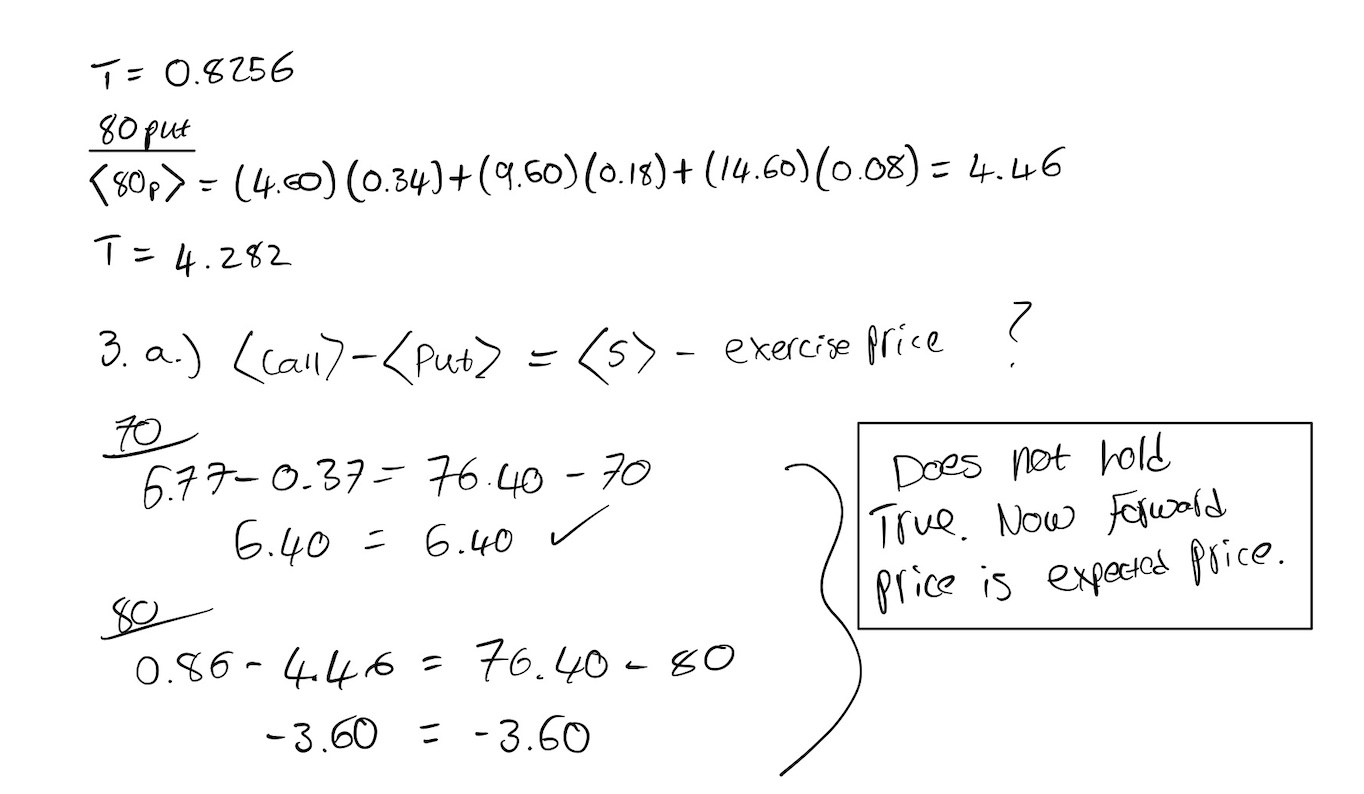 T = 0.8256
80 put
<80p> = (4.60)(0.34)+(9.60)(0.18)+(14.60)(0.08) = 4.46
T = 4.282
3. a.) <Call> - <Put> = <S> - exercise price ?
70
6.77 - 0.37 = 76.40 - 70
6.40 = 6.40 ✓
80
0.86 - 4.46 = 76.40 - 80
-3.60 = -3.60
Does not hold
True. Now Forward
price is expected price.